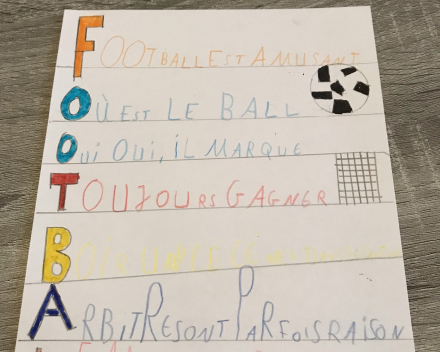 FOOTBALL EST AMUSANT
OÙ EST LE BALL
Oui Oui, iL MARQUE
TOUJOURS GAGNER
B
ARBITRE SONT PARFOIS RAISON